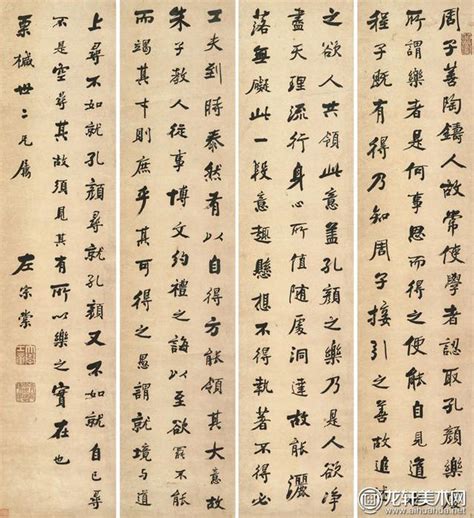 周子善陶鑄人故常使學者認取孔顏樂處
所謂樂者是何事思而得之便能自見道
程子既有得乃知周子接引之善故追述
之欲人共領此意蓋孔顏之樂乃是人欲淨
盡天理流行身心所值隨處洞達故能灑
落無礙此一段意趣懸想不得執著不得必
工夫到時泰然有以自得方能領其大意故
朱子教人從事博文約禮之誨以至欲罷不能
而竭其才則庶乎其可得之愚謂就境與道
上尋不如就孔顏尋就孔顏又不如就自己尋
不是空尋其故須見其有所以樂之實在也
世二兄屬
左宗棠
龙轩美术网
www.aihuahua.net